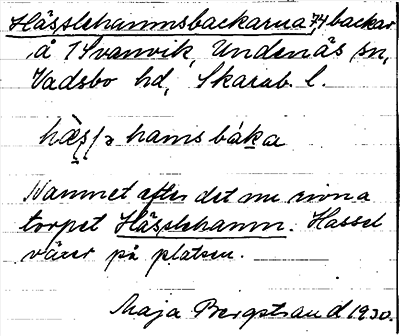 Hässlehammsbackarna 74, backar
å 1 Svanvik, Undenäs sn,
Vadsbo hd, Skarab. l.
hamsbáka
Namnet efter det nu rivna
torpet Hässlehamn. Hassel
växer på platsen.
Maja Bergstrand 1930.